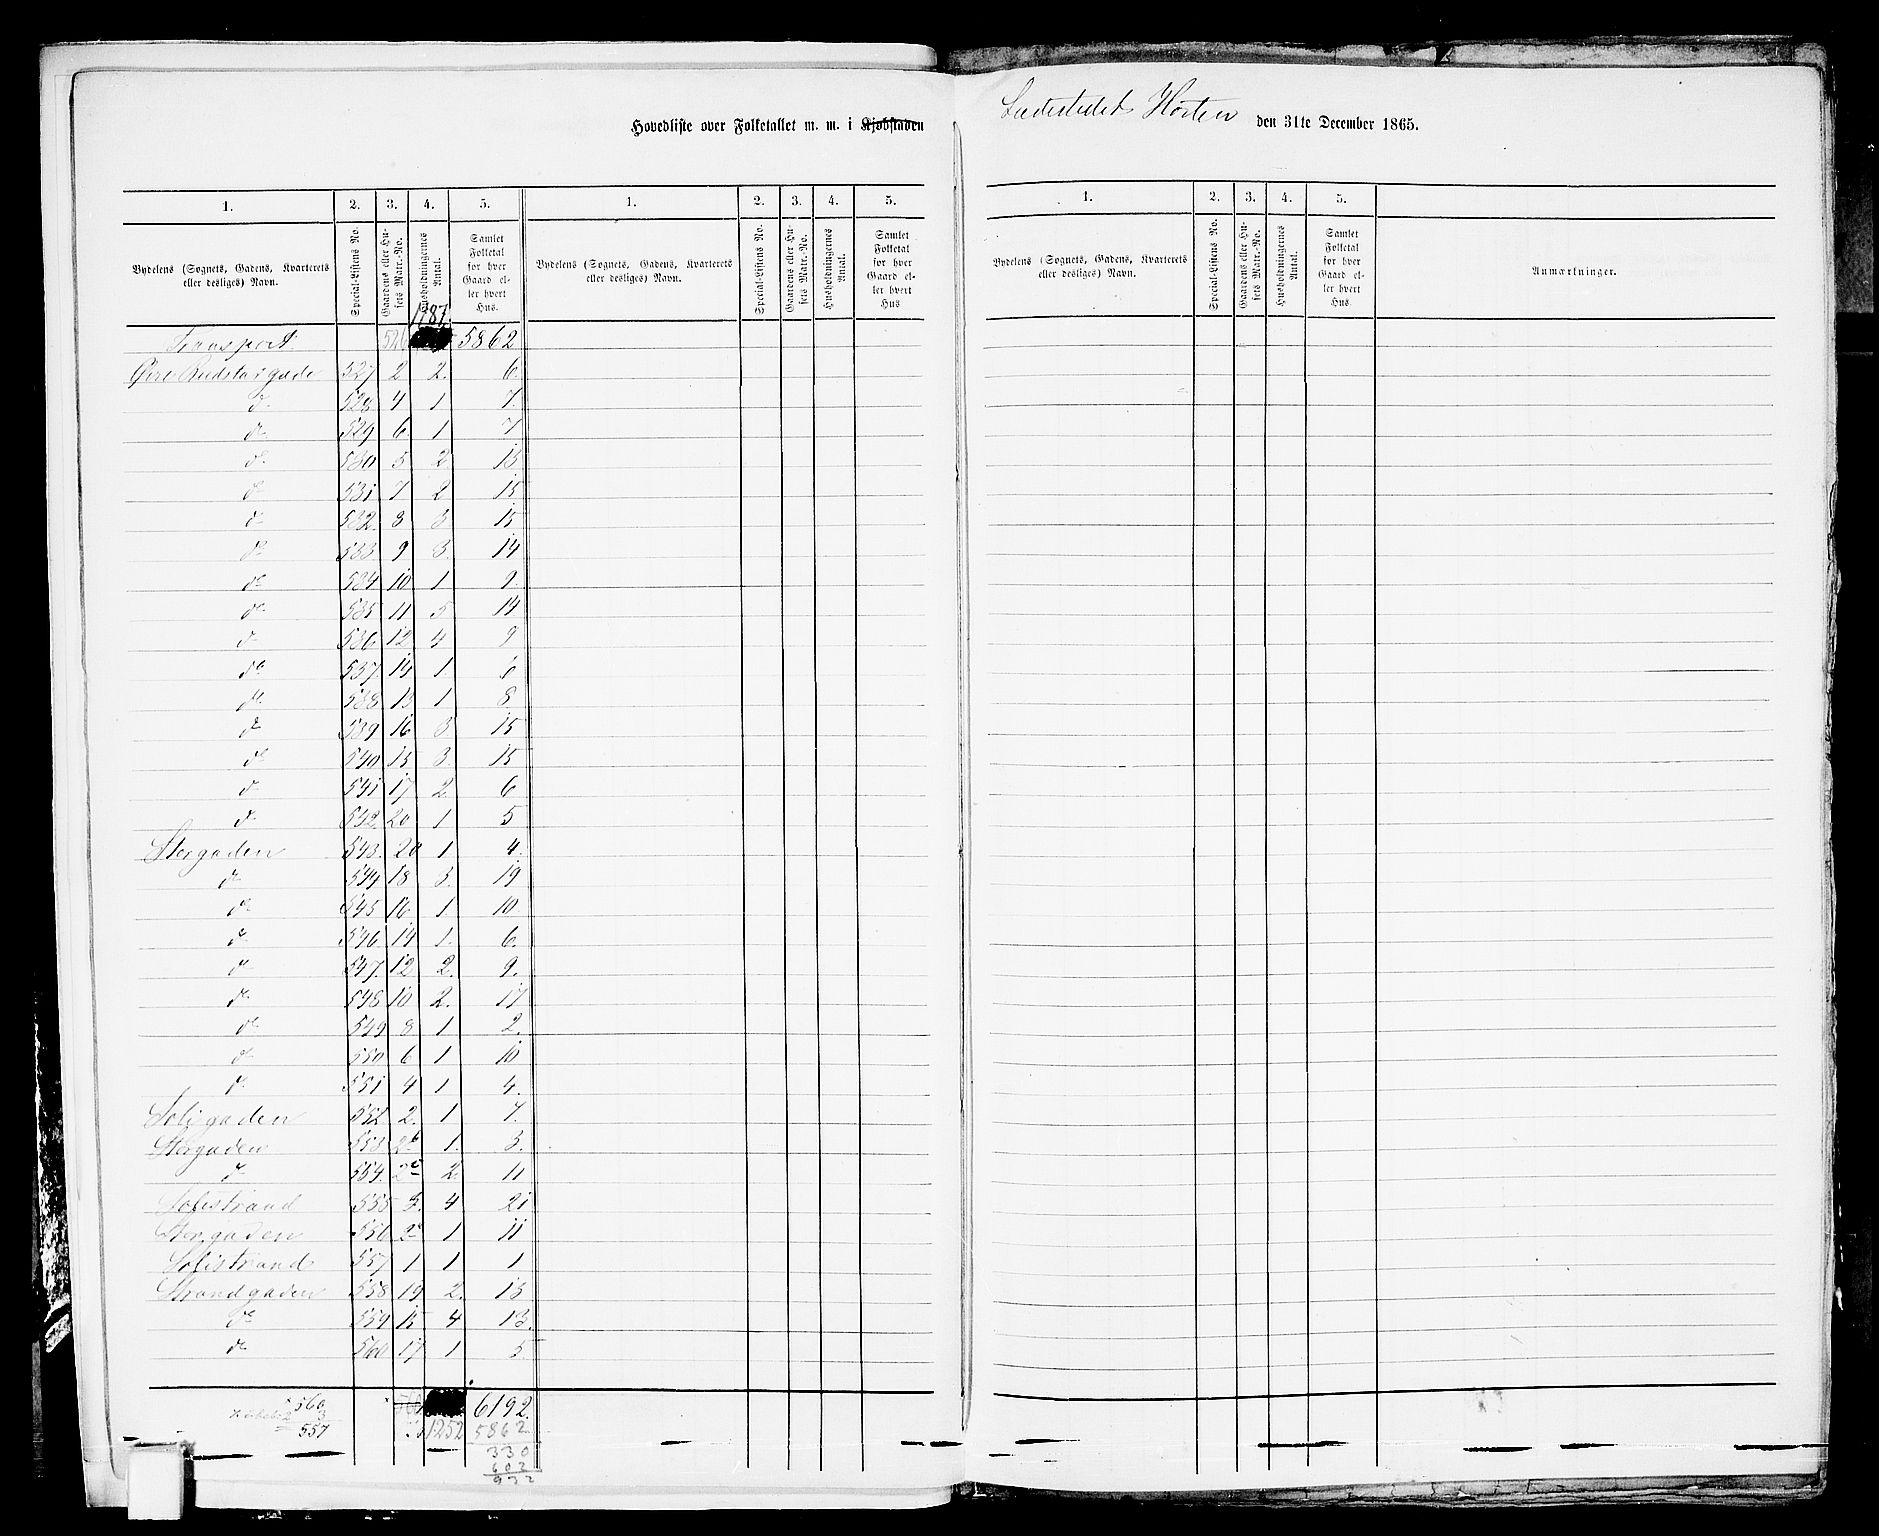 Hovedliste over Folketallet m. m. i Kjøbstaden Ladestedet Horten den 31te December 1865.
1. 2. 3. 4. 5. 1. 2. 3. 4. 5. 1. 2. 3. 4. 5.
Bydelens (Sognets, Gadens, Kvarterets eller desliges) Navn. Special-Listens No. Gaardens eller Husets Matr.-No. Husholdningernes Antal. Samlet Folketal for hver Gaard eller hvert Hus. Bydelens (Sognets, Gadens, Kvarterets eller desliges) Navn. Special-Listens No. Gaardens eller Husets Matr.-No. Husholdningernes Antal. Samlet Folketal for hver Gaard eller hvert Hus Bydelens (Sognets, Gadens, Kvarterets eller desliges) Navn. Special-Listens No. Gaardens eller Husets Matr.-No. Husholdningernes Antal. Samlet Folketal for hver Gaard eller hvert Hus. Anmærkninger.
1187.
Transport 526 5862
527 2 2. 6.
do 528 4 1 7.
do 529 6. 1 7
do 530 5 2 13
do 531 7 2 15
do 532. 8 3 15
do 533 9 3. 14
do 534 10 1 9.
do 535 11 5 14
do 536 12 4 9
do 537. 14 1
do 538 13 1 8.
do 539 16 3 15
do 540 15 3. 15
do 541 17 2 6
do 542. 20 1 5
Stergaden 543. 20 1 4.
do 544 18 3. 19
do 545 16 1 10.
do 546. 14 1. 6.
do 547. 12 2. 9.
do 548 10 2. 17
do 549 8 1 2.
do 550 6 1 10
do 551 4 1 4.
552. 2. 1 7.
Stergaden 553 2b 1. 3.
do 554. 2c 2. 11
555 3. 4 21
Stergaden 556 1 11
557 1 1 1
Strandgaden 558 19 2. 13
do 559 15 4 13.
do 560 17 1 5
560 560 6192.
3 1252 5862
557 330
602
932